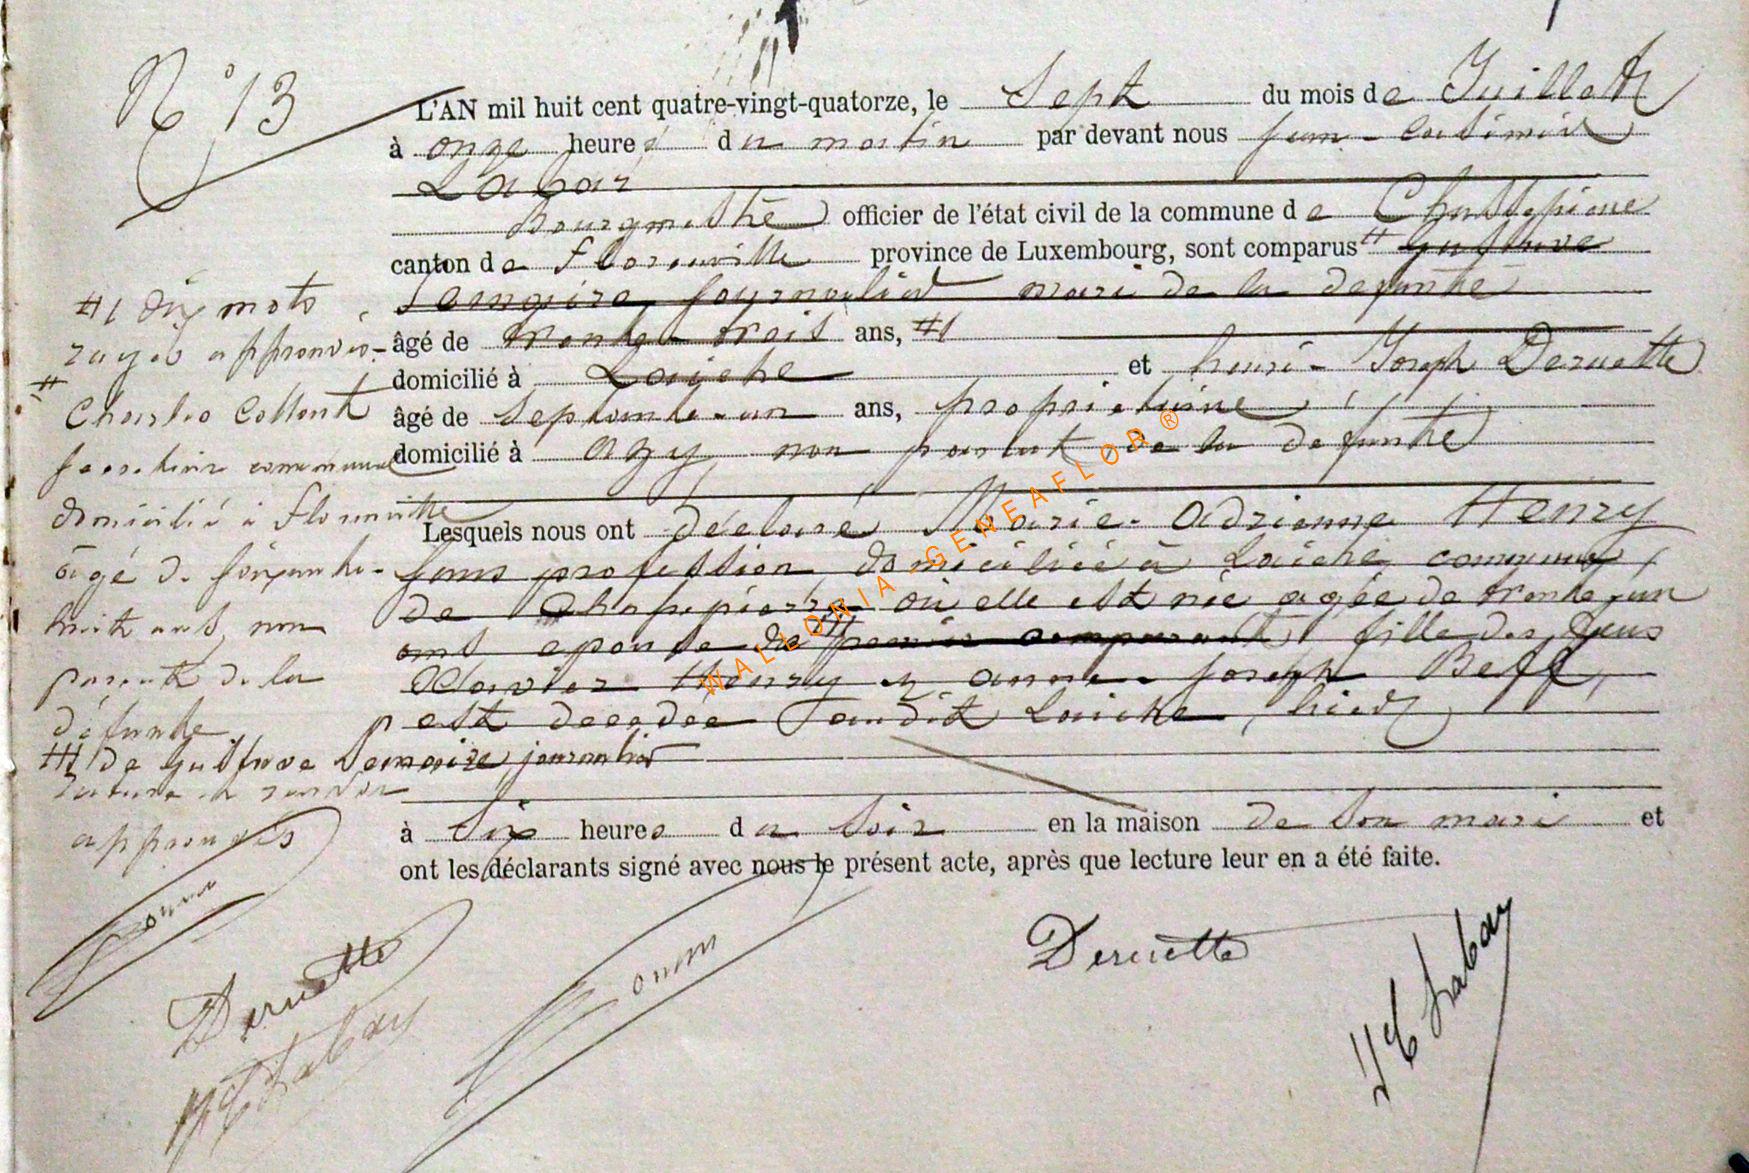 N° 13
L'AN mil huit cent quatre-vingt-quatorze, le Sept du mois de Juillett
à onze heures du matin par devant nous jean-Casimir
Labar
Bourgmestre officier de l'état civil de la commune de Chassepierre
canton de Florenville province de Luxembourg, sont comparus # Gustave
Lemaire, journalier mari de la defunte
âgé de trente trois ans, #1
domicilié à Laiche et henri-Joseph Deruette
âgé de septante-un ans, propriétaire
domicilié à azy, non parent de la defunte
Lesquels nous ont déclaré Marie-Adrienne Henry
sans profession domiciliée à Laiche commune
de Chassepierre où elle est née agée de trente un
ans epouse du #1 premier comparant fille des feus
Xavier Henry et anne-joseph Beff,
est decedee audit Laiche, hier
à six heures du soir en la maison de son mari et
ont les déclarants signé avec nous le présent acte, après que lecture leur en a été faite.
#1 dix mots
rayés approuvés.
#
Charles Collard
secrétaire communal
domicilié à Florenville
âgé de cinquante-
huit ans, non
parent de la
défunte
#1 de gustave Lemaire journalier
rature et renvoi
approuvés
Deruette
JC Labar
Deruette
JC Labar
WALLONIA-GENEAFLOR®